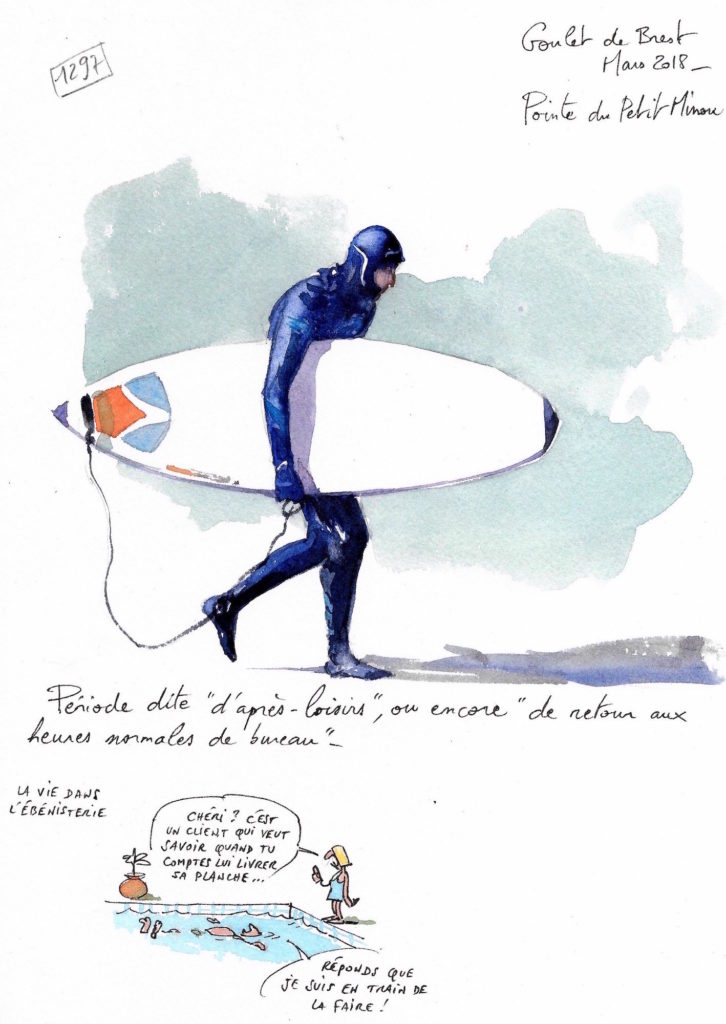 1297
Goulet de Brest
Mars 2018_
Pointe du Petit Minou
Période dite "d'après-loisirs", ou encore "de retour aux
heures normales de bureau"_
LA VIE DANS
L'ÉBÉNISTERIE
CHÉRI ? C'EST
UN CLIENT QUI VEUT
SAVOIR QUAND TU
COMPTES LUI LIVRER
SA PLANCHE...
RÉPONDS QUE
JE SUIS EN TRAIN DE
LA FAIRE !